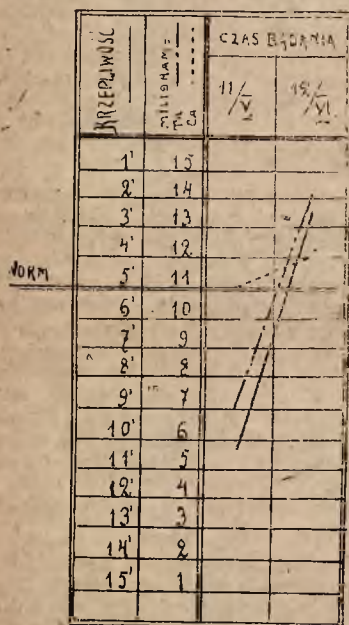 KRZEPLIWOŚĆ
MILIGRAM =
Ca
CZAS BADANIA
11/V
19/VI
1' 15
2' 14
3' 13
4' 12
NORM
5' 11
6' 10
7' 9
8' 8
9' 7
10' 6
11' 5
12' 4
13' 3
14' 2
15' 1